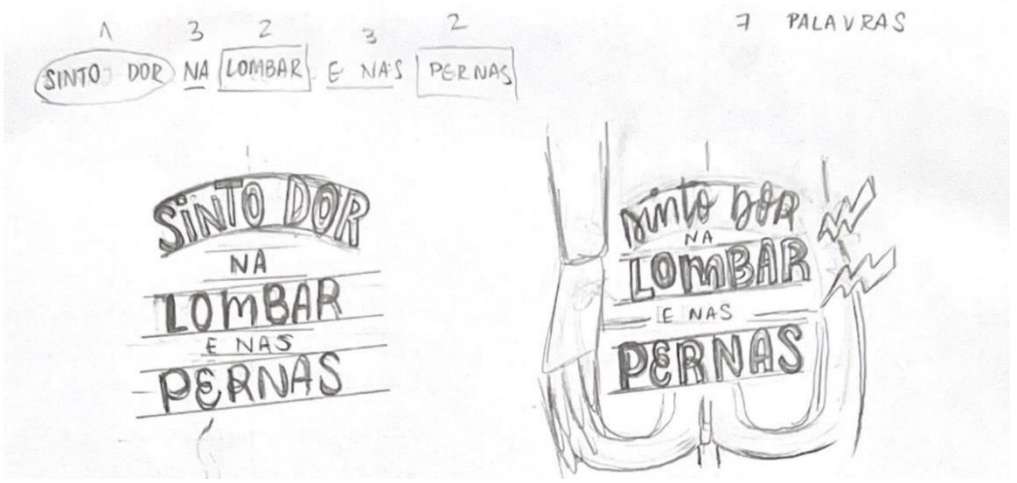 1 3 2 3 2
7 PALAVRAS
SINTO DOR NA LOMBAR E NAS PERNAS
SiNTO DOR
NA
LOmBAR
E NAS
PERNAS
sinto dor
NA
LOmBAR
E NAS
PERNAS